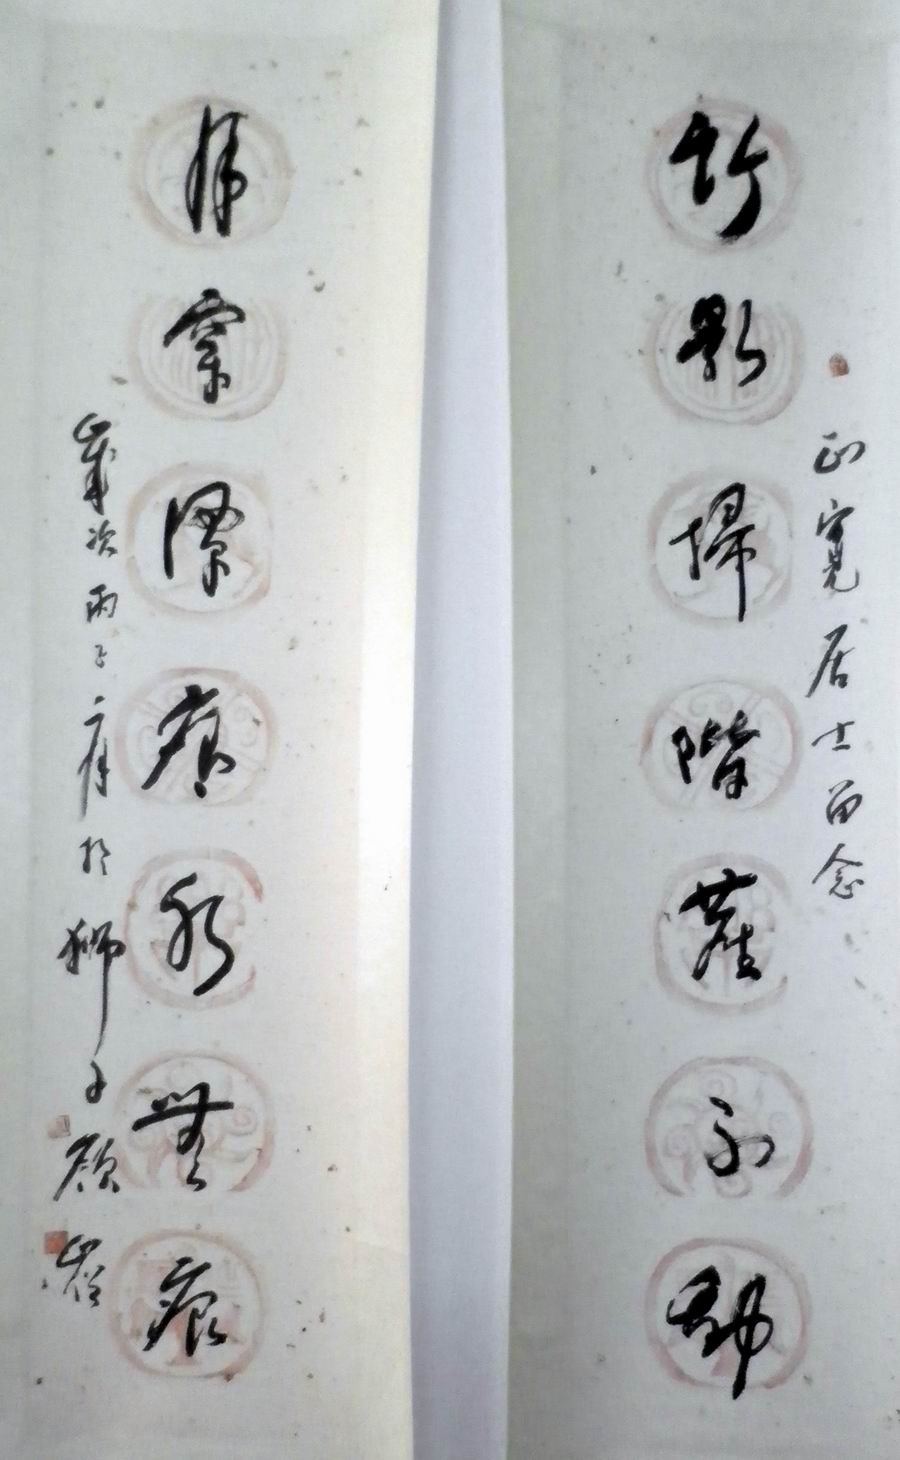 正寬居士留念
竹影掃階塵不動
月穿潭底水無痕
歲次丙子二月於獅子